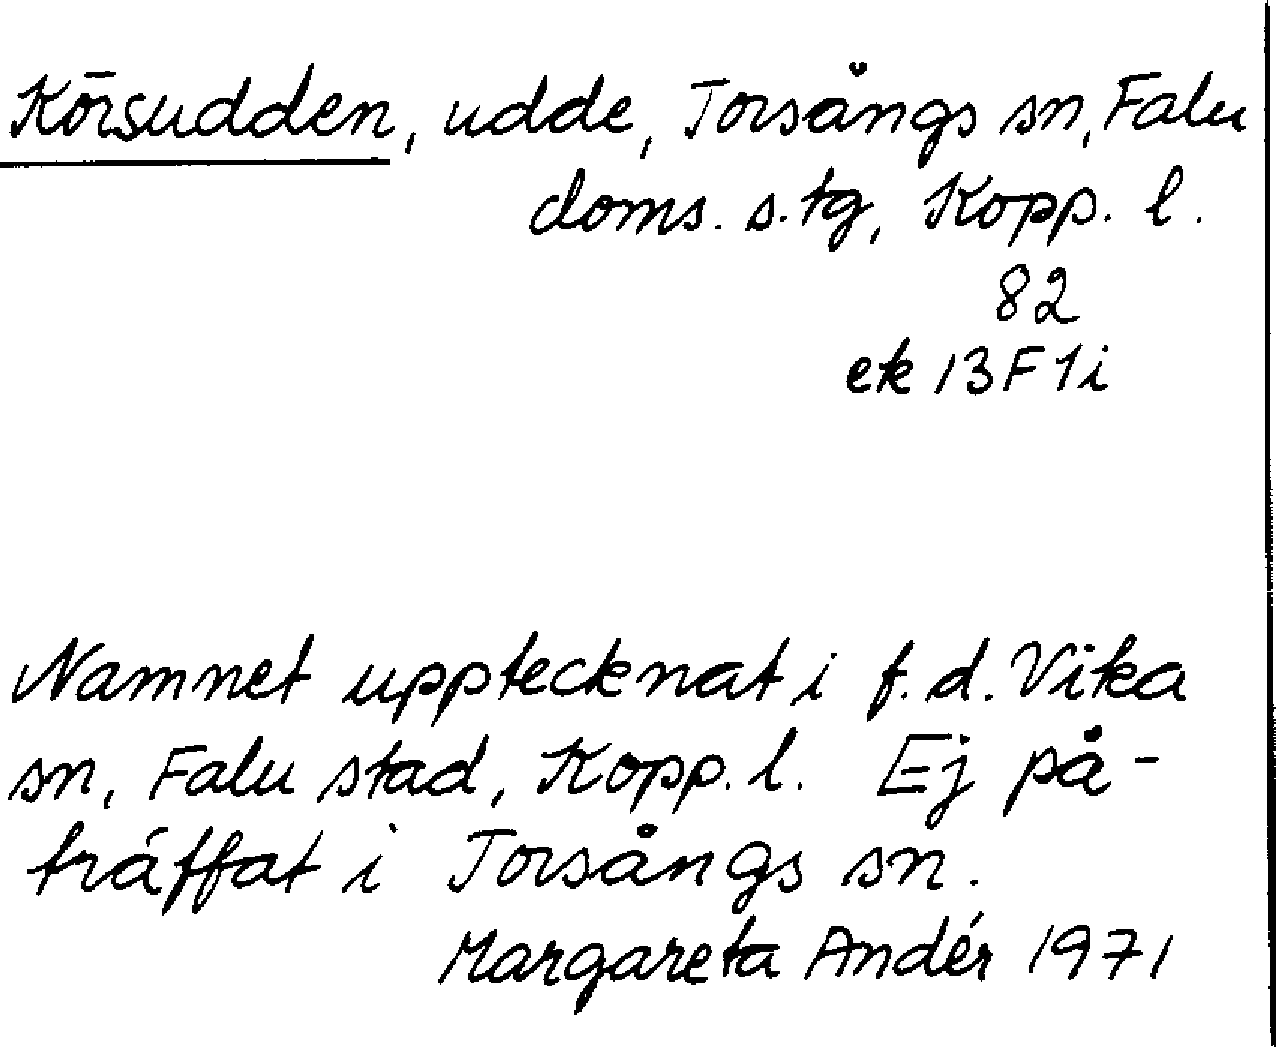 Körsudden, udde, Torsångs sn, Falu
doms. s. tg, Kopp. l.
82
ek 13F1i
Namnet upptecknat i f. d. Vika
sn, Falu stad, Kopp. l. Ej på-
träffat i Torsångs sn.
Margareta Andér 1971